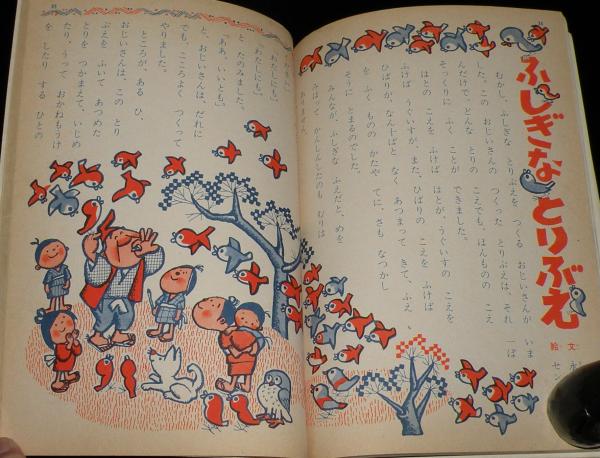 ふしぎな とりぶえ
絵・文
むかし、ふしぎな とりぶえを つくる おじいさんが いま
した。この おじいさんの つくった とりぶえは、それ 一ぽ
んだけで、どんな とりの こえでも、ほんものの こえ
そっくりに ふく ことが できました。
はとの こえを ふけば はとが、うぐいすの こえを、
ふけば うぐいすが、また、ひばりの こえを ふけば
ひばりが、なん十ぱと なく あつまって きて、ふえ
を ふく ものの かたや てに、さも なつかし
そうに とまるのでした。
みんなが、ふしぎな ふえだと、めを
みはって かんしんしたのも むりは
ありません。
「わたしにも」
「わたしにも」
と、たのみました。
「ああ、いいとも」
と、おじいさんは、だれに
でも、こころよく つくって
やりました。
ところが、ある ひ、
おじいさんは、この とり
ぶえを ふいて あつめた
とりを つかまえて、いじめ
たり、うって おかねもうけ
を したり する ひとの